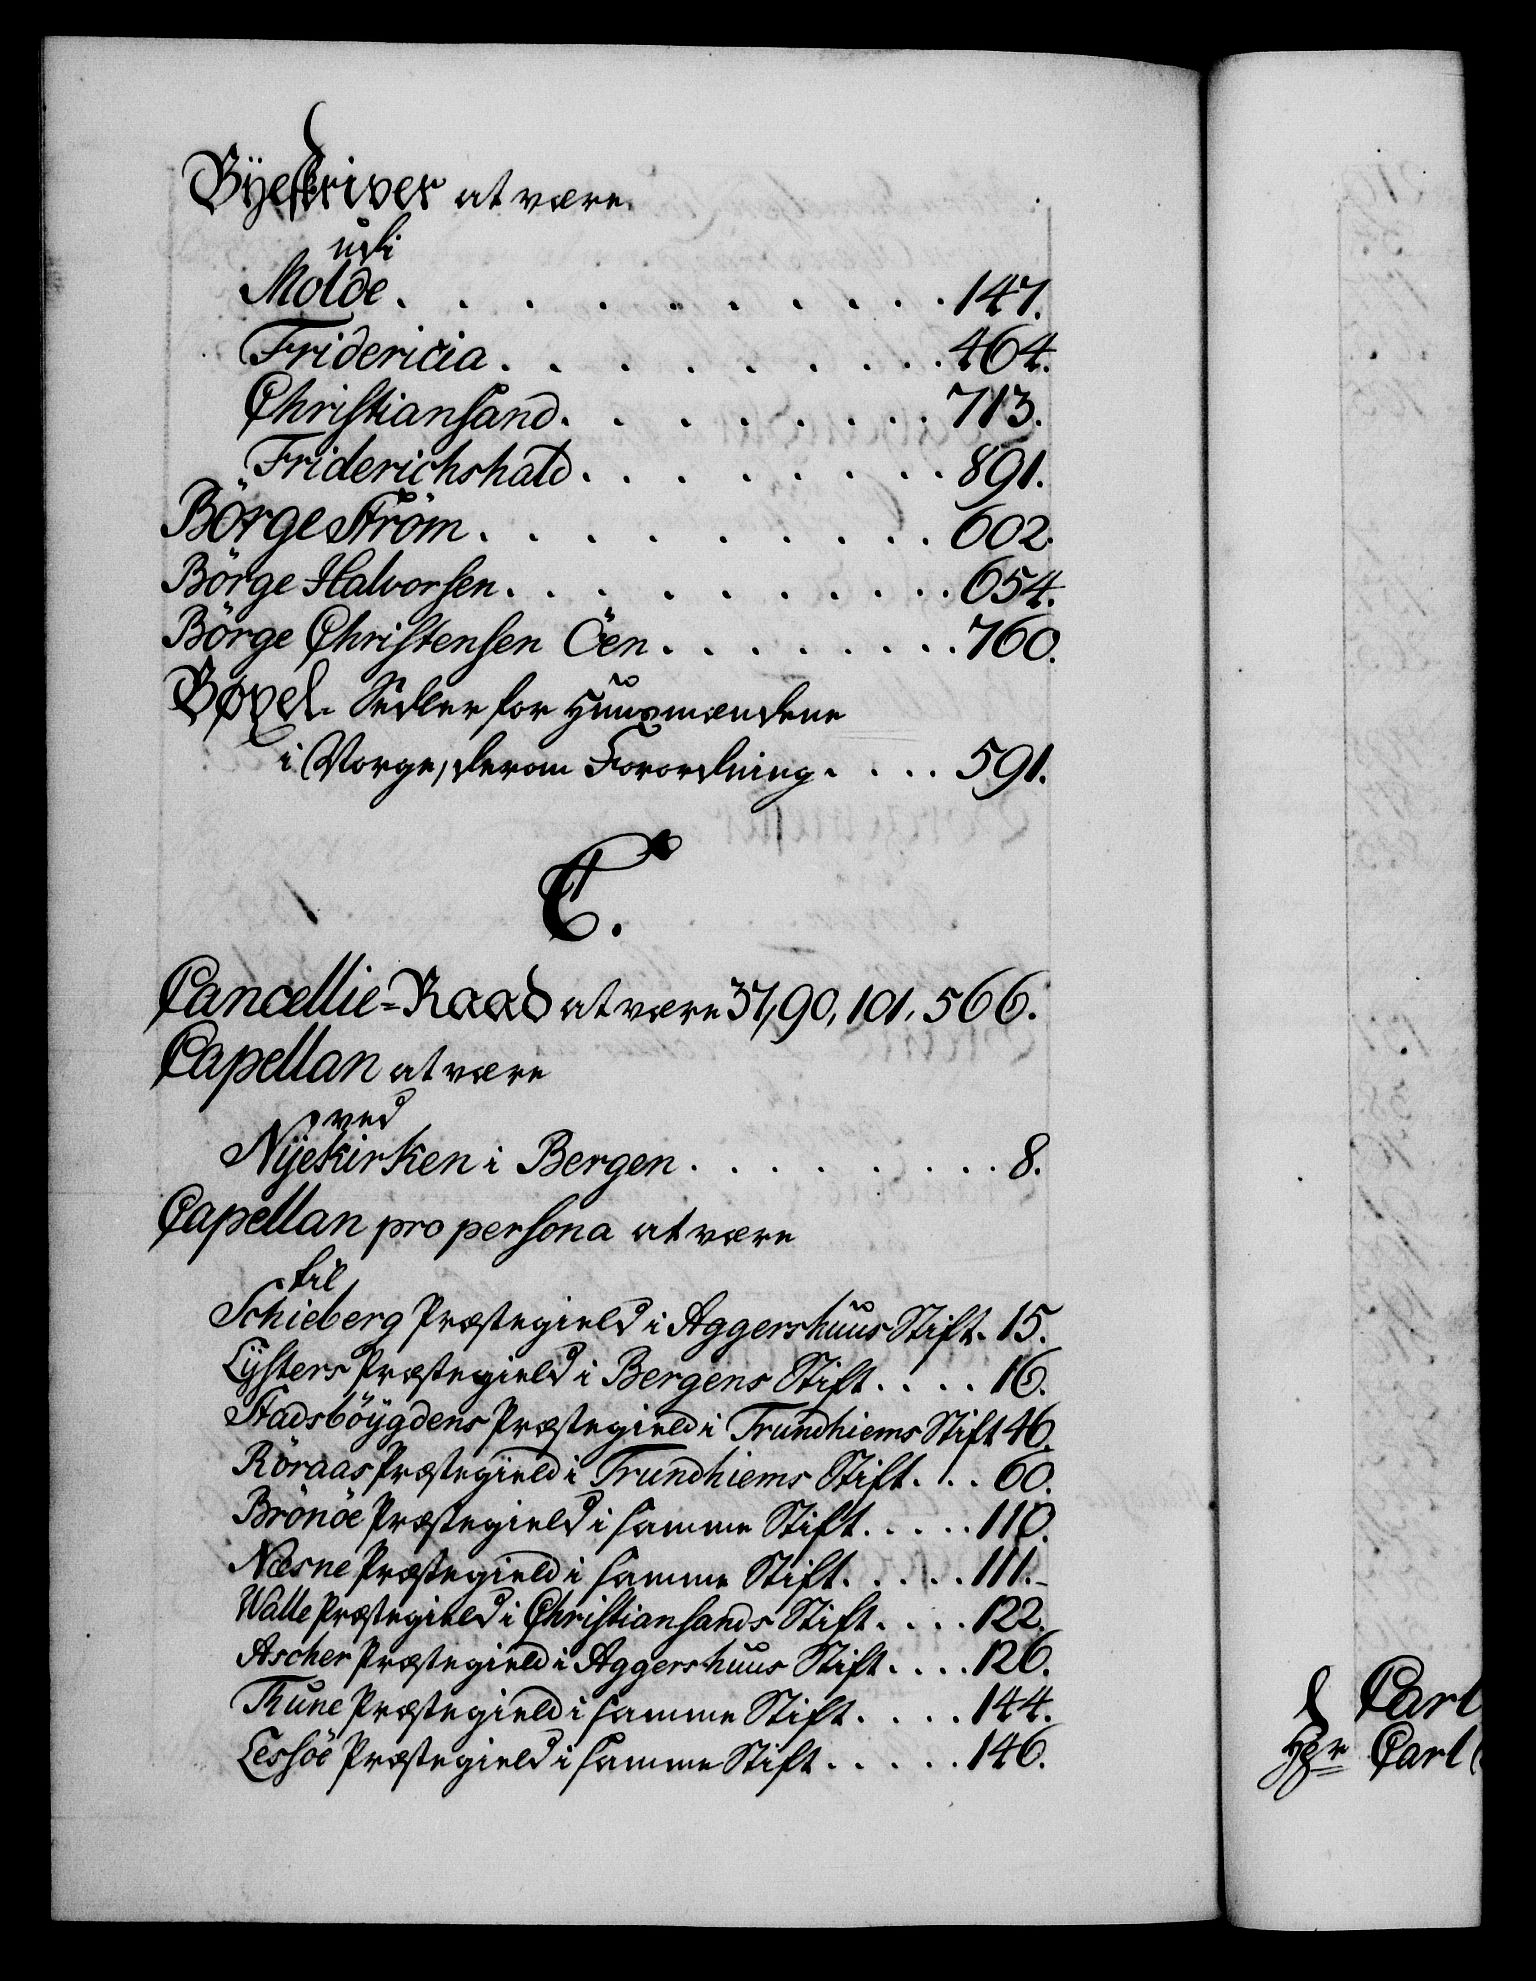 Bÿeskriver at være
udi
Molde . . . . . . . . . . 147.
Fridericia . . . . . . . . 464.
Christiansand . . . . . . . 713.
Friderichshald . . . . . . . 891.
Börge Ström . . . . . . . . 602.
Börge Halvorsen . . . . . . . . 654.
Börge Christensen Öen . . . . . . 760.
Bøxel-Sedler for Huusmændene
i Norge, derom Forordning . . . . 591.
C.
Cancellie=Raad at være 37, 90, 101. 566.
Capellan at være
ved
Nÿekirken i Bergen . . . . . . . 8.
Capellan pro persona at være
til
Schieberg Præstegield i Aggershuus Stift. 15.
Lÿsters Præstegield i Bergens Stift . . . . 16.
Stadsböÿgdens Præstegield i Trundhiems Stift 46.
Röraas Præstegield i Trundhiems Stift . . . 60.
Brönöe Præstegield i samme Stift . . . . . 110.
Næsne Præstegield i samme Stift . . . . . 111.
Walle Præstegield i Christiansands Stift . . . . 122.
Ascher Præstegield i Aggershuus Stift . . . . 126.
Thune Præstegield i samme Stift . . . . 144.
Lessöe Præstegield i samme Stift . . . . . 146.
Carl
Hr Carl